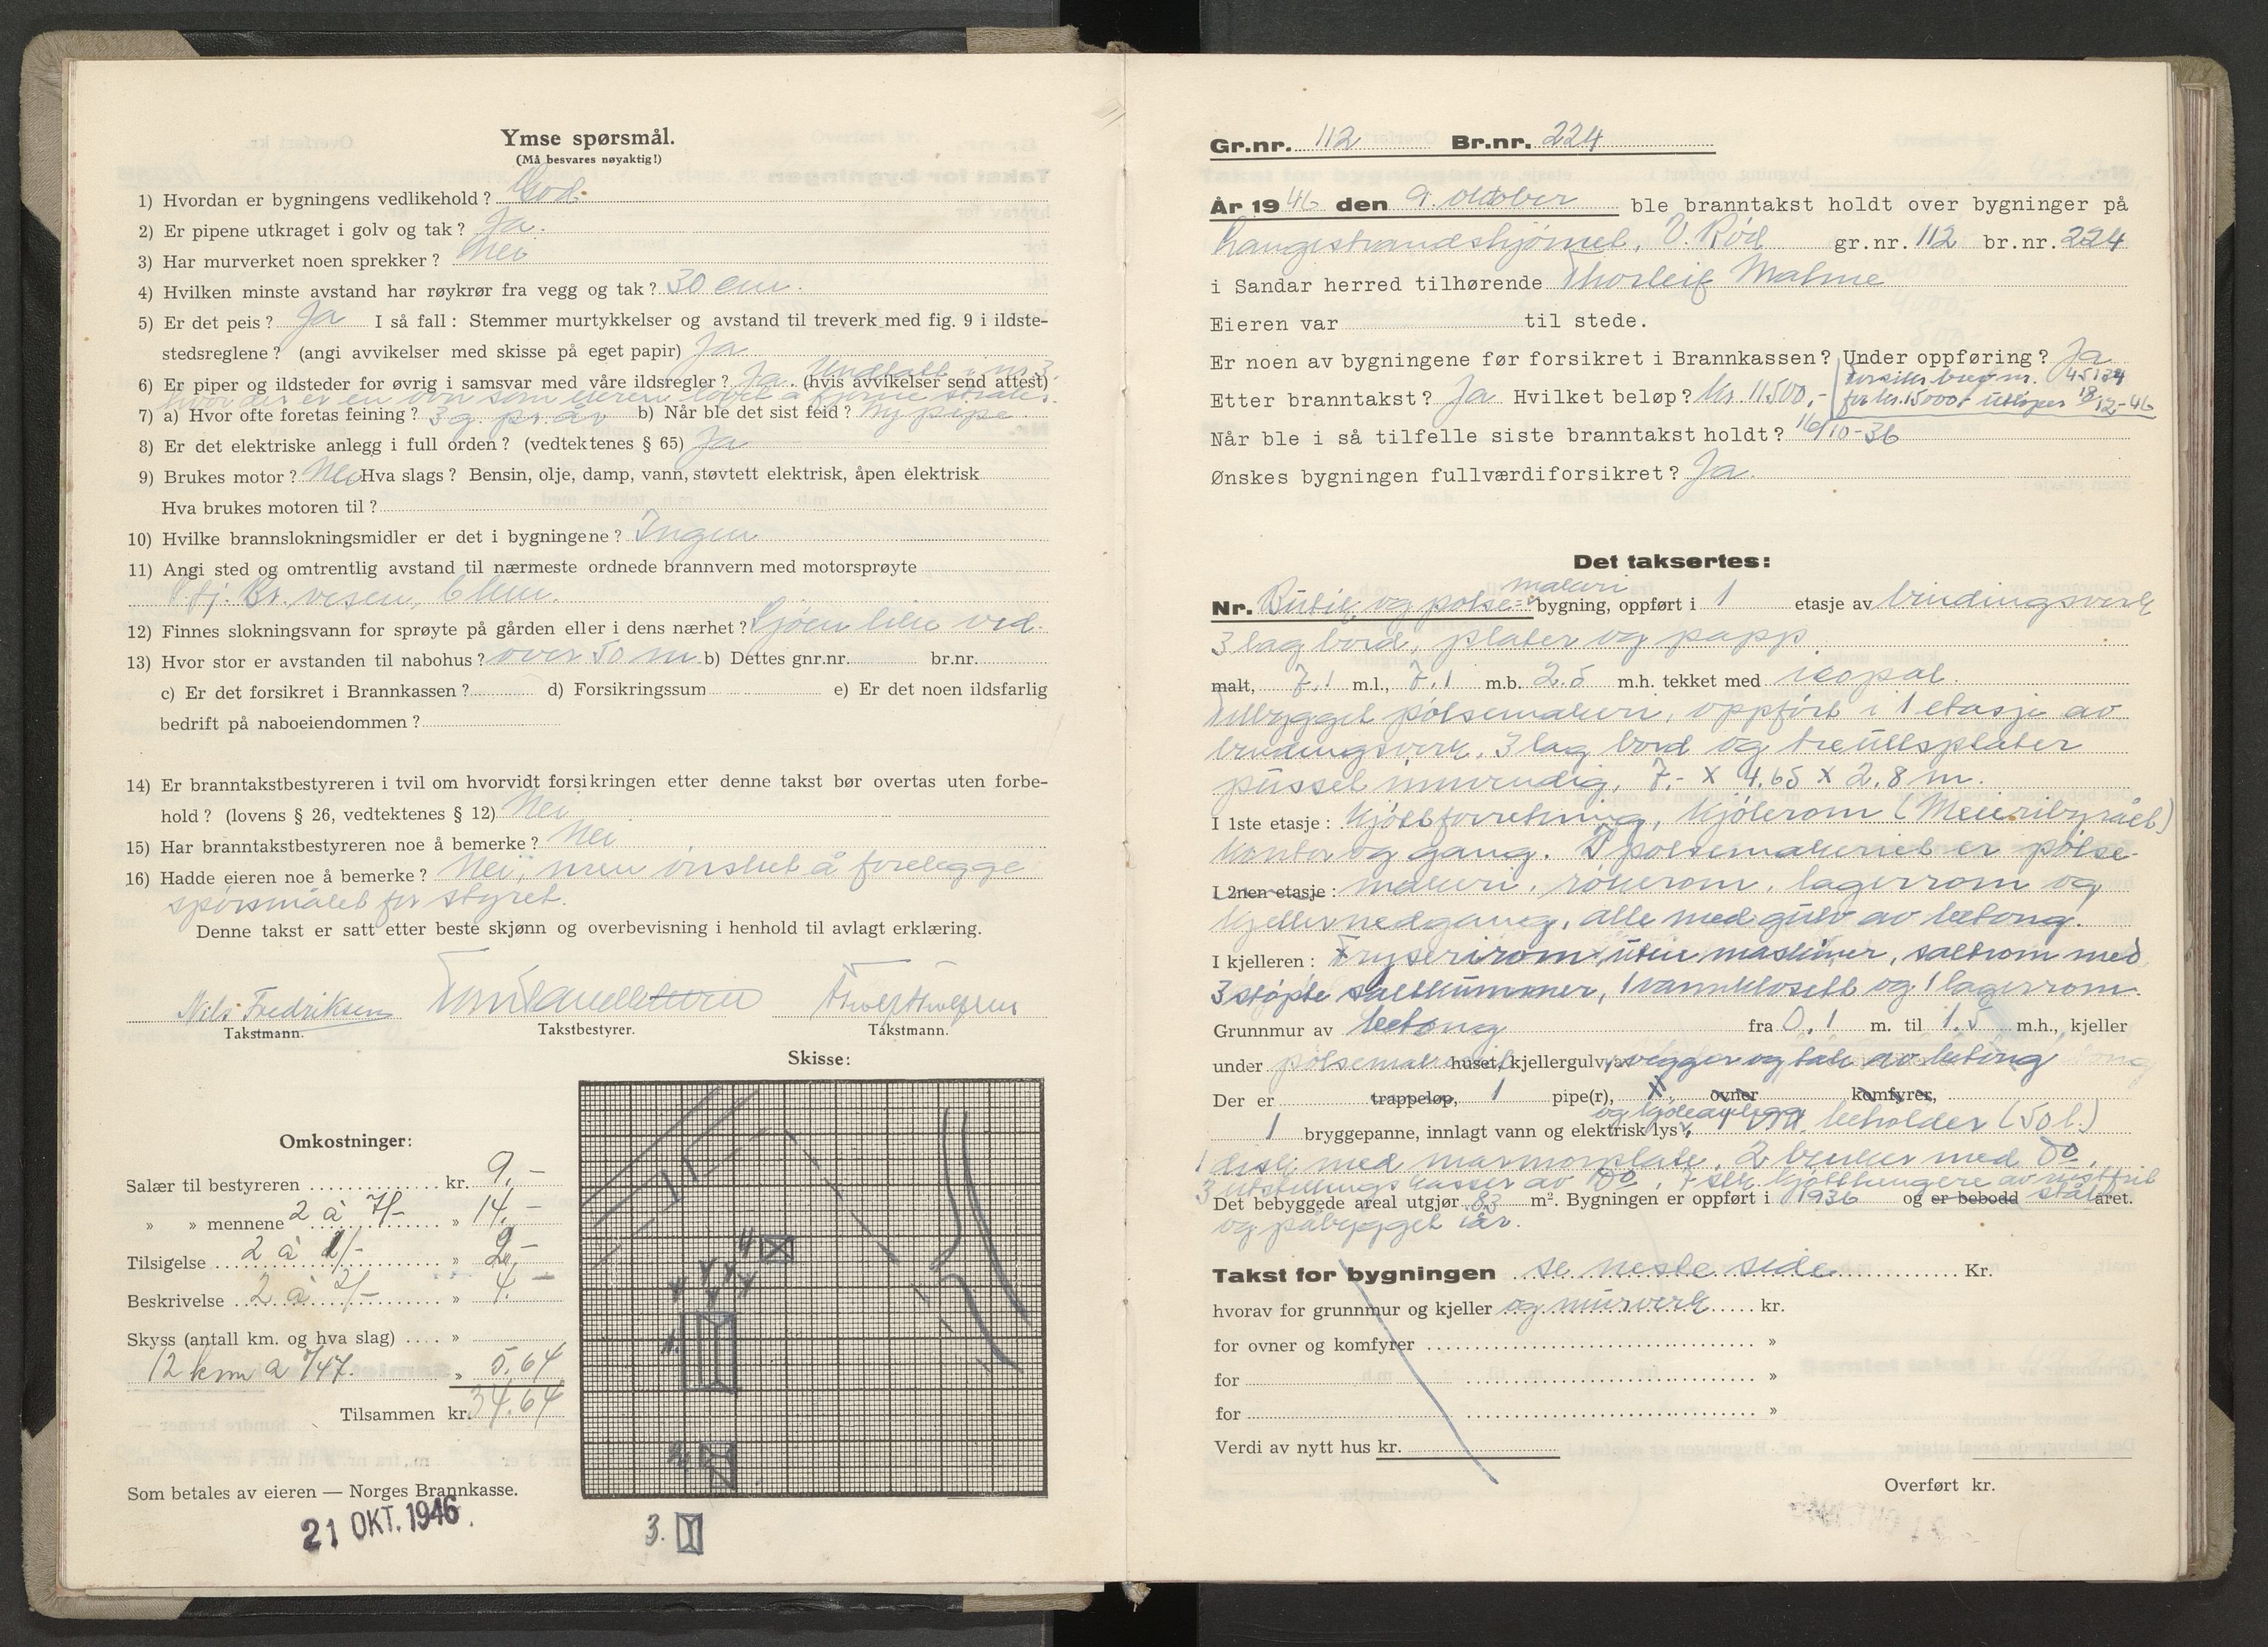 Ymse spørsmål.
(Må besvares nøyaktig!)
1) Hvordan er bygningens vedlikehold? God.
2) Er pipene utkraget i golv og tak? Ja.
3) Har murverket noen sprekker? Nei
4) Hvilken minste avstand har røykrør fra vegg og tak? 30 cm.
5) Er det peis? Ja I så fall: Stemmer murtykkelser og avstand til treverk med fig. 9 i ildste-
stedsreglene? (angi avvikelser med skisse på eget papir) Ja
Undtatt i nr. 3.
6) Er piper og ildsteder for øvrig i samsvar med våre ildsregler? Ja. (hvis avvikelser send attest)
hvor der er en ovn som eieren lovet å fjerne straks.
7) a) Hvor ofte foretas feining? 3 g. pr. år b) Når ble det sist feid? Ny pipe.
8) Er det elektriske anlegg i full orden? (vedtektenes § 65) Ja
9) Brukes motor? Nei Hva slags? Bensin, olje, damp, vann, støvtett elektrisk, åpen elektrisk
Hva brukes motoren til?
10) Hvilke brannslokningsmidler er det i bygningene? Ingen
11) Angi sted og omtrentlig avstand til nærmeste ordnede brannvern med motorsprøyte
Sfj. Br. vesen, 6 km.
12) Finnes slokningsvann for sprøyte på gården eller i dens nærhet? Sjøen like ved.
13) Hvor stor er avstanden til nabohus? over 50 m. b) Dettes gnr.nr. br.nr.
c) Er det forsikret i Brannkassen? d) Forsikringssum e) Er det noen ildsfarlig
bedrift på naboeiendommen?
14) Er branntakstbestyreren i tvil om hvorvidt forsikringen etter denne takst bør overtas uten forbe-
hold? (lovens § 26, vedtektenes § 12) Nei
15) Har branntakstbestyreren noe å bemerke? Nei
16) Hadde eieren noe å bemerke? Nei, men ønsket å forelegge
spørsmålet for styret.
Denne takst er satt etter beste skjønn og overbevisning i henhold til avlagt erklæring.
Nils Fredriksen
Takstmann. Takstbestyrer. Takstmann.
Skisse:
Omkostninger:
Salær til bestyreren kr. 9,-
» » mennene 2 à 7/- » 14.-
Tilsigelse 2 à 1/- » 2,-
Beskrivelse 2 à 2/- » 4.-
Skyss (antall km. og hva slag) »
12 km a /47. » 5.64
Tilsammen kr. 34.64
Som betales av eieren — Norges Brannkasse.
21 OKT. 1946
4
1.
2.
3.
Gr.nr. 112 Br.nr. 224
År 1946 den 9. oktober ble branntakst holdt over bygninger på
Langestrandshjørnet, V. Rød gr.nr. 112 br.nr. 224
i Sandar herred tilhørende Thorleif Malme
Eieren var til stede.
Er noen av bygningene før forsikret i Brannkassen? Under oppføring? Ja
forsikr. brev nr. 45134
Etter branntakst? Ja Hvilket beløp? kr. 11.500,- for kr. 15000,- utløper 18/12-46
Når ble i så tilfelle siste branntakst holdt? 16/10-36
Ønskes bygningen fullværdiforsikret? Ja.
Det taksertes:
makeri
Nr. Butik og pølse= bygning, oppført i 1 etasje av bindingsverk
3 lag bord, plater og papp
malt, 7.1 m.l., 7.1 m.b. 2.5 m.h. tekket med icopal.
Tilbygget pølsemakeri, oppført i 1 etasje av
bindingsverk, 3 lag bord og treullsplater
pusset innvendig, 7.- x 4.65 x 2.8 m.
I 1ste etasje: Kjøttforretning, Kjølerom (Meieribyrået)
kontor og gang. I pølsemakeriet er pølse-
I 2nen etasje: makeri, røkerom, lagerrom og
kjellernedgang, alle med gulv av betong.
I kjelleren: Fryserirom, uten maskiner, saltrom med
3 støpte saltkummer, 1 vannklosett og 1 lagerrom.
Grunnmur av betong fra 0,1 m. til 1.5 m.h., kjeller
under pølsemakeriet huset, kjellergulv, av vegger og tak av betong
Der er trappeløp, 1 pipe(r), ovner komfyrer,
og kjøleanlegg
1 bryggepanne, innlagt vann og elektrisk lys, 1 beholder (50 l.)
1 disk med marmorplate, 2 benker med do,
3 utstillingskasser av do, 7 stk. kjøtthengere av rustfrit
Det bebyggede areal utgjør 83 m². Bygningen er oppført i 1936 og er bebodd stål året.
og påbygget i år.
Takst for bygningen se neste side Kr.
hvorav for grunnmur og kjeller og murverk kr.
for ovner og komfyrer »
for »
for »
Verdi av nytt hus kr.
Overført kr.